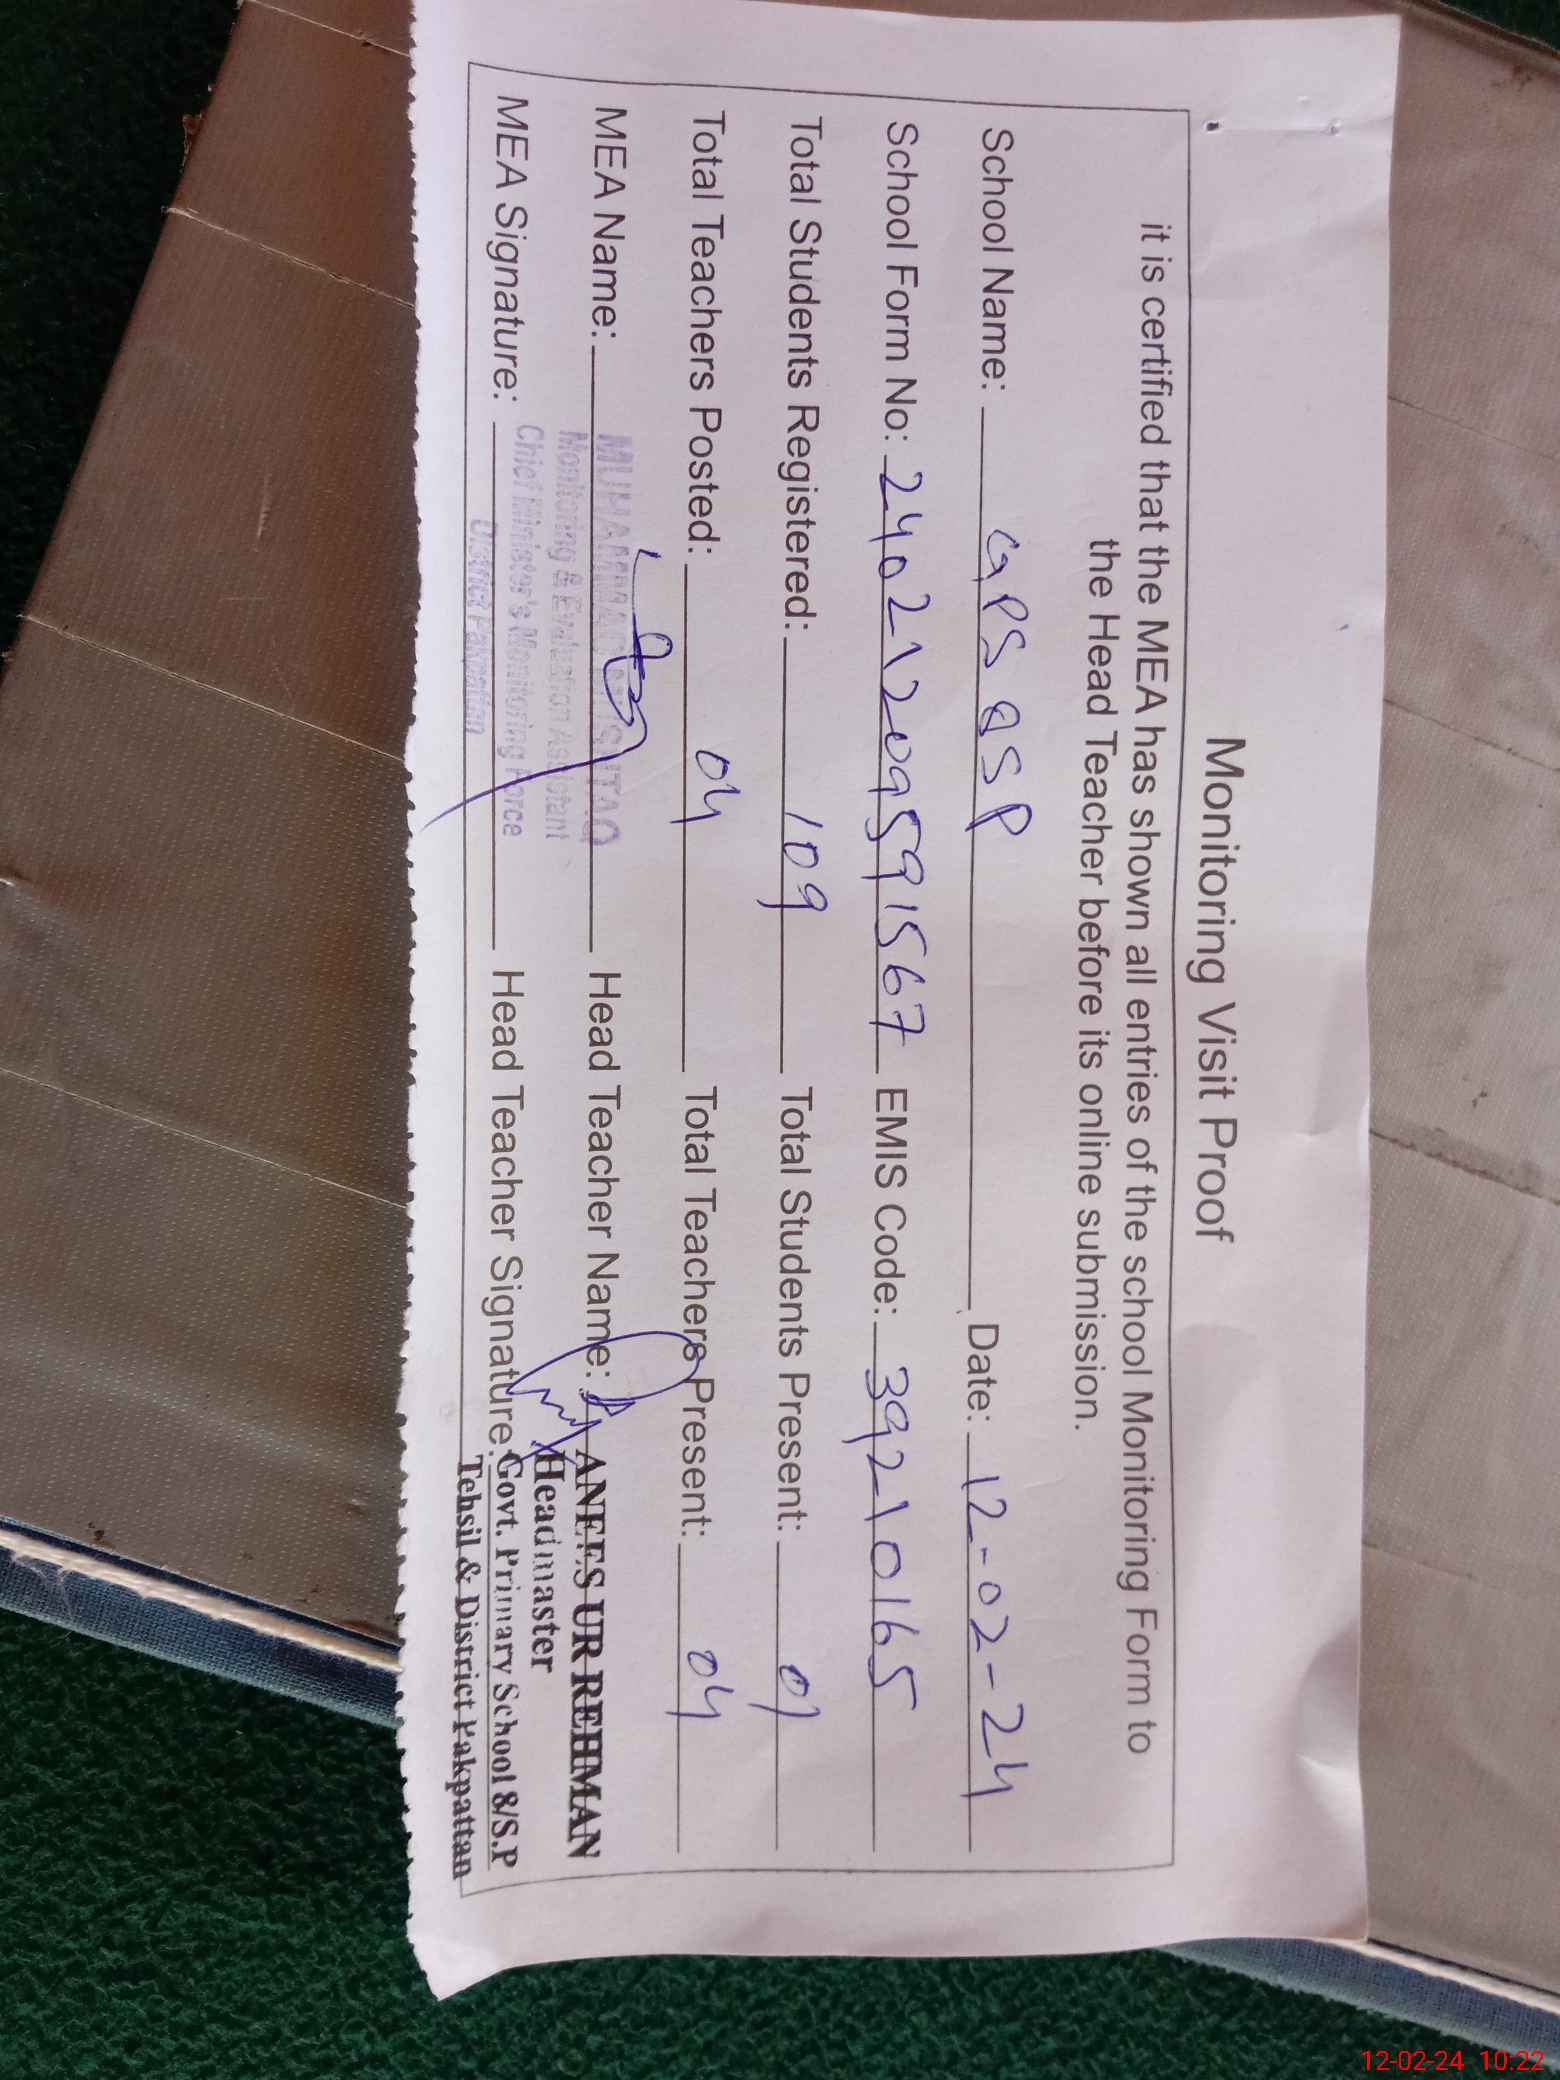 Monitoring Visit Proof
it is certified that the MEA has shown all entries of the school Monitoring Form to
the Head Teacher before its online submission.
School Name: GPS 8SP Date: 12-02-24
School Form No: 24021209591567 EMIS Code: 39210165
Total Students Registered: 109 Total Students Present:
Total Teachers Posted: 04 Total Teachers Present: 04
MEA Name: MUHAMMAD Head Teacher Name: ANEES UR REHMAN
Monitoring & Evaluation Assistant Headmaster
MEA Signature: Chief Minister's Monitoring Force Head Teacher Signature: Govt. Primary School 8/S.P
District Pakpattan Tehsil & District Pakpattan
12-02-24 10:22